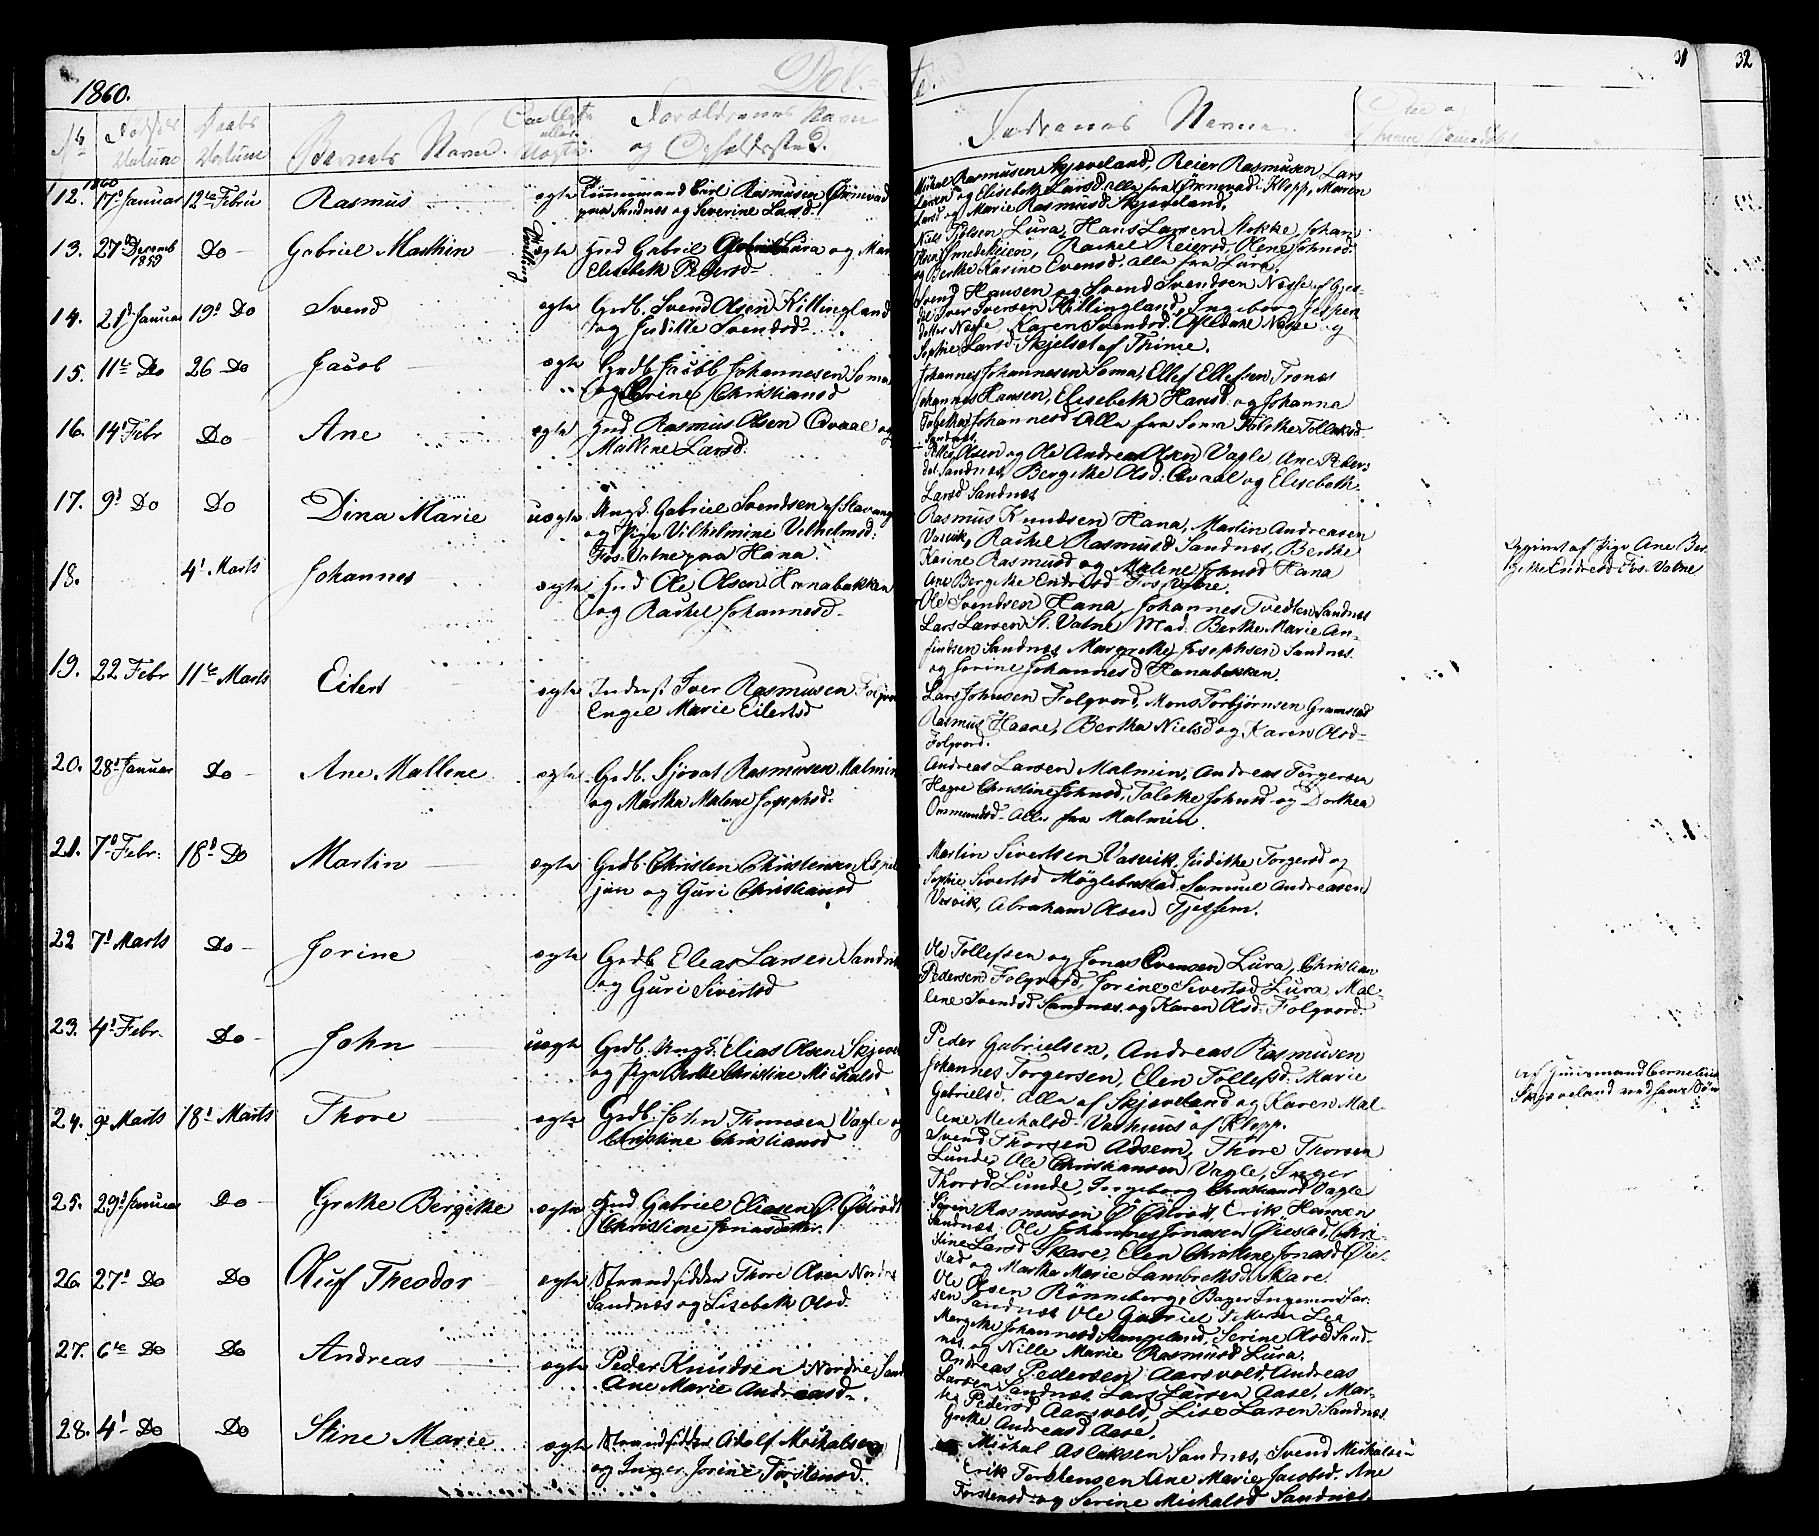 1860.
Døb-
te.
31
32
No
Fødsels Datum
Daabs Datum
Barnets Navn.
Om Ægte eller Uægte.
Forældrenes Navn og Opholdsted.
Faddernes Navne.
12. 1860 17d Januar 12te Febru Rasmus ægte Tømmermand Carl Rasmusen
paa Sandnes og Severine Larsd.
Michal Rasmusen Skjæveland, Reier Rasmusen Lars
Larsen og Elisebeth Larsd. alle fra Klopp, Maren
Larsd og Marie Rasmusd. Skjæveland.
13. 27d Decemb 1859 Do Gabriel Mathin ægte Gmd Gabriel Lura og
Elisebeth Pedersd
Niels Lura, Hans Larsen Stokke, Johan
Olsen Smedeheien, Rachel Reiersd, Olene Johnsd.
og Berthe Karine Evensd. alle fra Lura.
14. 21d Januar 19d Do Svend ægte Grdb. Svend Olsen Killingland
og Juditte Svendsd.
Svend Hansen og Svend Svendsen Næsse af
Iver Iversen Killingland, Ingeborg Jesper
datter Næsse, Karen Svendsd. Næsse og
Sophie Larsd. Skjelset af Thime.
15. 11te Do 26 Do Jacob ægte Grdb Jacob Johannesen Soma
og Christiansd
Johannes Johannesen Soma, Ellef Ellefsen Trones
Johannes Hansen, Elisebeth Hansd. og Johanna
Tabetha Johannesd Alle fra Soma
Sandnes.
16. 14d Febr Do Ane ægte Gmd Rasmus Olsen Qvaal og
Mallene Larsd.
Olsen og Ole Andreas Olsen Vagle, Ane Peders
dat Sandnes, Bergithe Olsd. Qvaal og Elisebeth
Larsd Sandnes
17. 9d Do Do Dina Marie uægte Ungk. Gabriel Svendsen af Stavang
og Pige Vilhelmine Vilhelmsd.
Fos. Vatne paa Hana.
Rasmus Knudsen Hana, Martin Andreasen
Vasvik, Rachel Rasmusd Sandnes, Berthe
Karine Rasmusd og Malene Johnsd Hana
Ane Bergithe Endresd Fos. Vatne.
Opgivet af Pige Ane Ber
githe Endresd Fos. Vatne
18. 4d Marts Johannes ægte Gmd Ole Olsen Hanabakken
og Rachel Johannesd.
Ole Svendsen Hana, Johannes Tvedten Sandnes
Lars Larsen St. Vatne, Mad. Berthe Marie An-
findsen Sandnes Margrethe Josephsen Sandnes.
og Jorine Johannesd Hanabakken.
19. 22 Febr 11te Marts Eilert ægte Inderst Iver Rasmusen
Engel Marie Eilertsd
Lars Johnsen Folqvord, Mons Torbjørnsen Gramstad
Rasmus Haave, Bertha Nielsd og Karen Olsd
Folqvord.
20. 28d Januar Do Ane Mallene ægte Grdb. Sjovat Rasmusen Malmin
og Martha Malene Josephsd.
Andreas Larsen Malmin, Andreas Torgersen
Høgve Christine Johnsd, Talethe Johnsd og Dorthea
Ommundsd. Alle fra Malmin.
21. 7d Febr. 18d Do Martin ægte Grdb. Christen Christensen
og Guri Christiansd
Martin Sivertsen Vasvik, Judithe Torgersd og
Sophie Sivertsd Møglebrstad Samuel Andreasen
Vasvik, Abraham Olsen Tjessem.
22 7d Marts Do Jorine ægte Grdb Elias Larsen Sandv
og Guri Sivertsd
Ole Tollefsen og Jonas Evensen Lura, Christian
Pedersen Folqvord, Jorine Sivertsd Lura, Mal-
lene Svendsd Sandnes og Karen Olsd. Folqvord.
23. 4d Febr. Do John uægte Grdb. Ungk. Elias Olsen Skjævel
og Pige Berthe Christine Michalsd
Peder Gabrielsen, Andreas Rasmusen
Johannes Torgersen, Elen Tollefsd. Marie
Gabrielsd. Alle af Skjæveland og Karen Mal-
lene Michalsd. Vashuus af Klopp.
af Huusmand Cornelius
Skjæveland ved hans Søn
24. 9de Marts 18d Marts Thore ægte Grdb. John Thomsen Vagle og
Christine Christiansd
Svend Thorsen Adsem, Thore Thorsen
Lunde, Ole Christiansen Vagle, Inger
Thorsd Lunde, Ingeborg Christiansd Vagle
25. 29d Januar Do Grethe Bergithe ægte Gmd Gabriel Eliasen
Christine Jonasdatter.
Søren Rasmusen Erik Hansen
Sandnes Ole Johannes Jonasen Øiestad, Chri-
stine Larsd Skare, Elen Christine Jonasd Øie-
stad og Martha Marie Lambrethsd Skare.
26. 27d Do Do Oluf Theodor ægte Strandsidder Thore Olsen Nordre
Sandnes og Lisebeth Olsd.
Ole Olsen Rønneberg, Bager Ingemon Lar-
sen Sandnes Ole Gabriel Pettersen Lea
Margethe Johannesd Stangeland, Serine Olsd Sand-
nes og Nille Marie Rasmusd Lura.
27. 6te Do Do Andreas ægte Peder Knudsen Nordre Sand
Ane Marie Andreasd.
Andreas Pedersen Aarsvold, Andreas
Larsen Sandnes, Lars Larsen Aase, Mar-
te Pedersd Aarsvold, Lise Larsen Sandnes.
Grethe Andreasd Aase.
28. 4d Do Do Stine Marie ægte Strandsidder Adolf Michalsen
og Inger Jorine Torstensd.
Michal Aslaksen Sandnes, Svend Michalsen
Erik Torstensen Ane Marie Jacobsd. Ane
Torstensd. og Serine Michalsd Sandnes